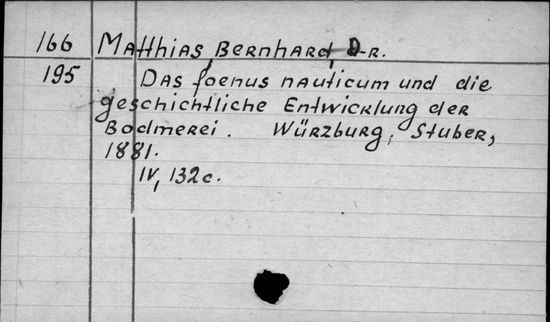 166 Matthias, Bernhard, D-r.
195 Das foenus nauticum und die
geschichtliche Entwicklung der
Bodmerei. Würzburg, Stuber,
1881.
IV, 132 c.